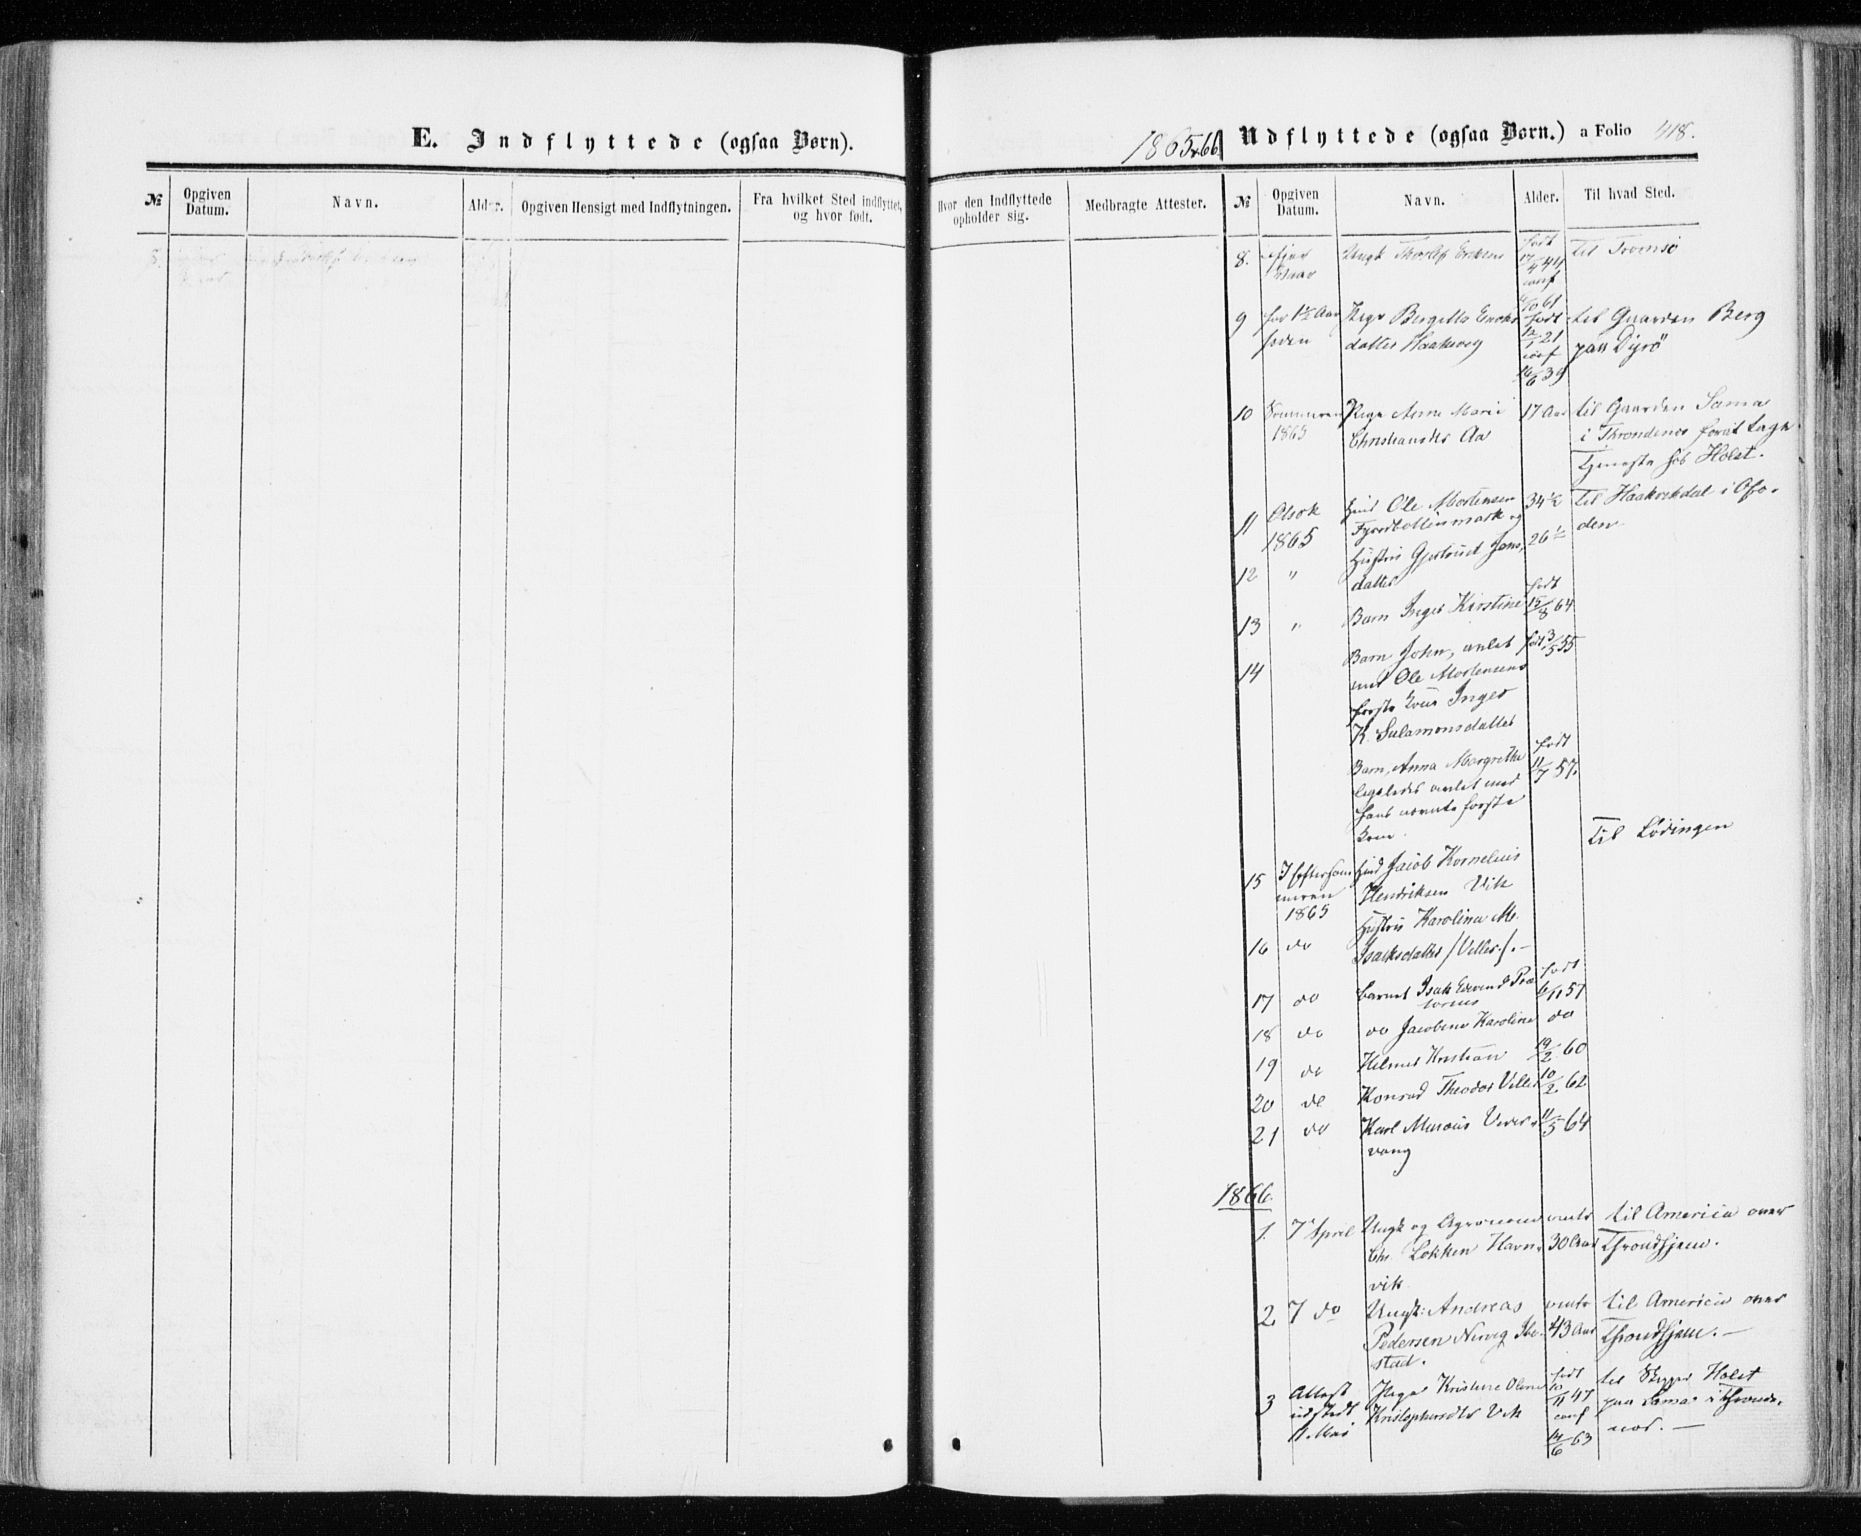 E. Indflyttede (ogsaa Børn).
№
Opgiven Datum.
Navn.
Alder.
Opgiven Hensigt med Indflytningen.
Fra hvilket Sted indflyttet, og hvor født.
Hvor den Indflyttede opholder sig.
Medbragte Attester.
1865 66
Udflyttede (ogsaa Børn.) a Folio 418.
№
Opgiven Datum.
Navn.
Alder.
Til hvad Sted.
8. Ungk
født
17/4 44
conf
til Tromsø
9 for 1½ Aar
siden
Pige Bergitta
datter
født
12/1 21
conf
16/6 39
til Gaarden Berg
paa Dyrø
10 Sommeren
1865
Pige Anna Marie
Christiansdtr Aa
17 Aar
til Gaarden Sama
i Throndenes for at tage
Tjeneste hos Holst.
11 Olsok
1865
Ole Mortensen
og
34½
til Haakvikdal i Ofo-
den
12 "
Hustru Gjertrud Jens-
datter
26½
13 "
Barn Inger Kirstine
født
15/8 64
14
Barn John, avlet
med Ole Mortensens
første Kone Inger
K. Salamonsdatter
født 3/5 55
Barn, Anna Margrethe
ligeledes avlet med
hans nævnte første
Kone.
født
11/7 57.
Til Lødingen
15 I Eftersom-
meren
1865
Jacob Kornelius
Hendriksen Vik
16 do
Hustru Karolina M.
Isaksdatter
17 do
barnet Isak
født
6/11 57
18 do
do Jacobine Karoline
do
19 do
Kristian
19/2 60
20 do
Konrad Theodor
10/2 62
21 do
Karl
vang
11/5 64
1866.
1. 7 April
Ungk og Agronom
Chr Løkken Havn-
vik
30 Aar
til America over
Throndhjem.
2 7 do
Ungk: Andreas
Pedersen Ibe-
stad.
43 Aar
til America over
Throndhjem. —
3 Attest
udstedt
11 Mai
Pige Kristine
Kristophersdtr Vik
født
10/11 47
conf
14/6 63
til Holst
paa Sama i Thronde-
nes. —